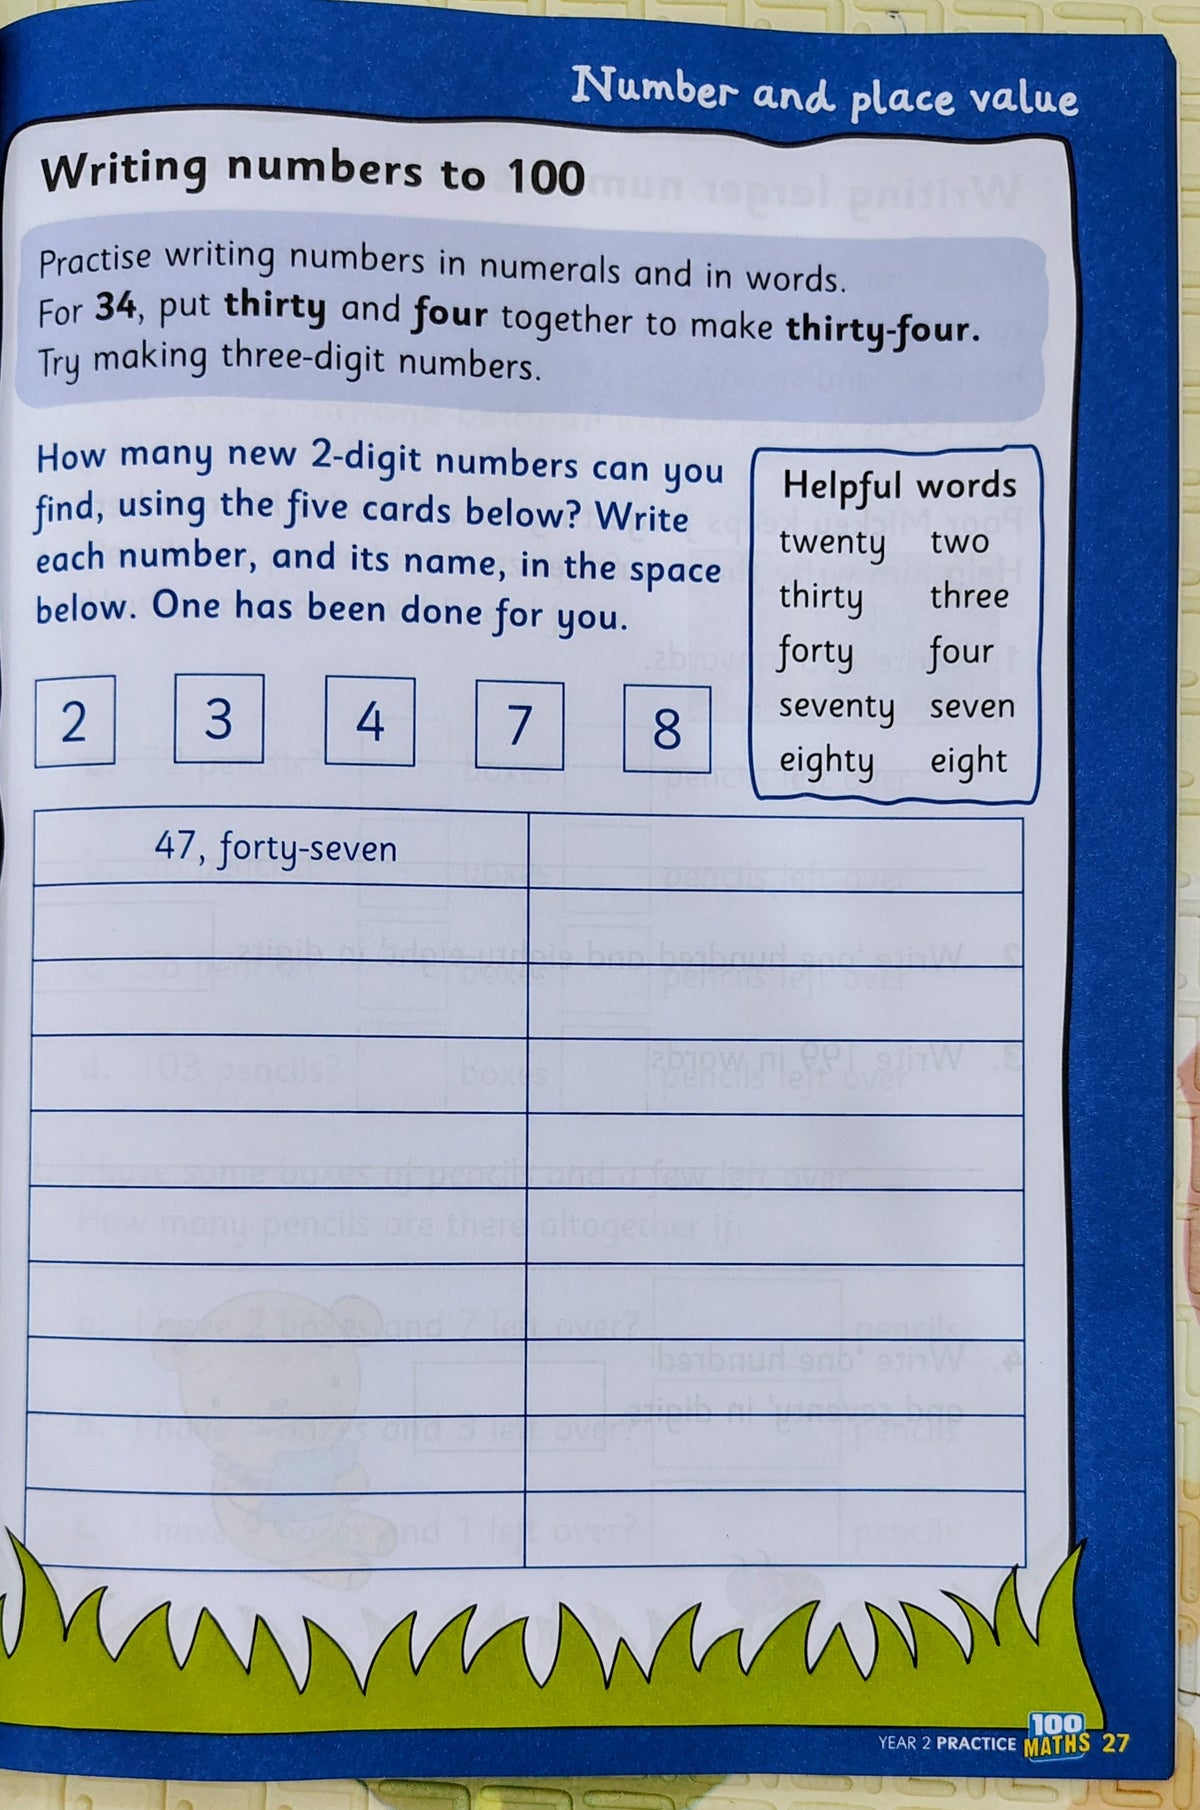 Number and place value
Writing numbers to 100
Practise writing numbers in numerals and in words.
For 34, put thirty and four together to make thirty-four.
Try making three-digit numbers.
How many new 2-digit numbers can you
find, using the five cards below? Write
each number, and its name, in the space
below. One has been done for you.
Helpful words
twenty two
thirty three
forty four
seventy seven
eighty eight
2 3 4 7 8
47, forty-seven
YEAR 2 PRACTICE 100 MATHS 27